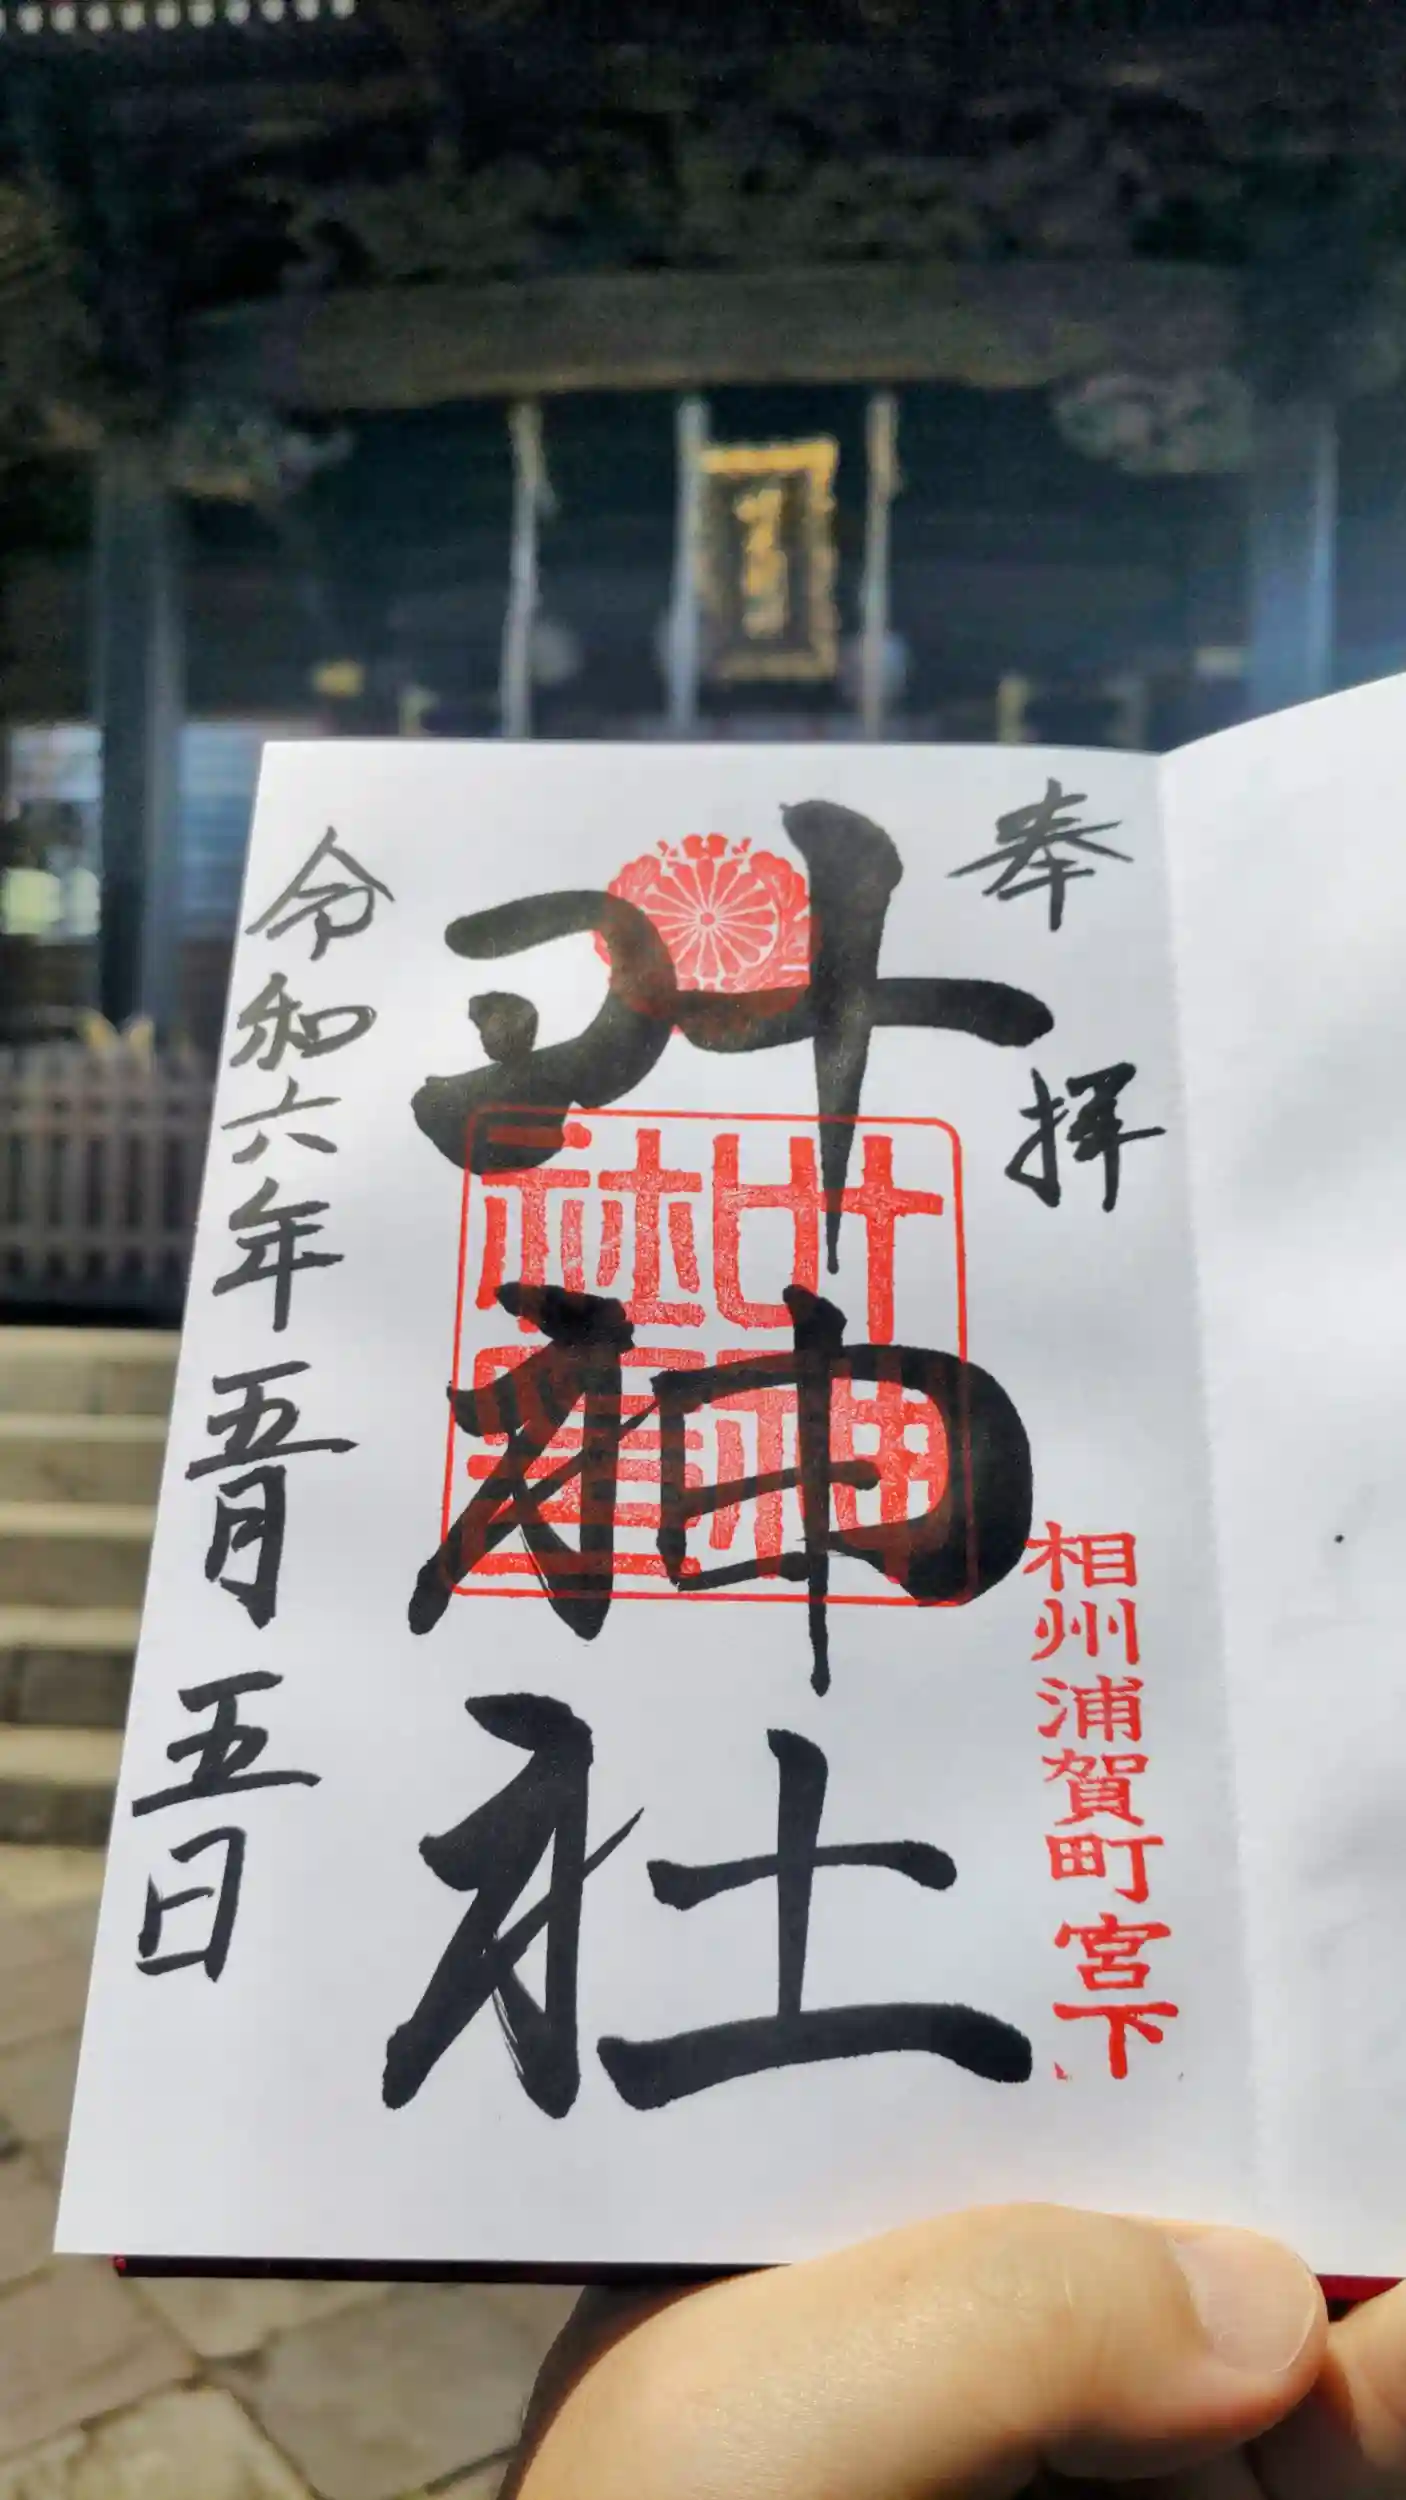 奉拝
相州浦賀町宮下
叶神社
叶神社璽
令和六年五月五日